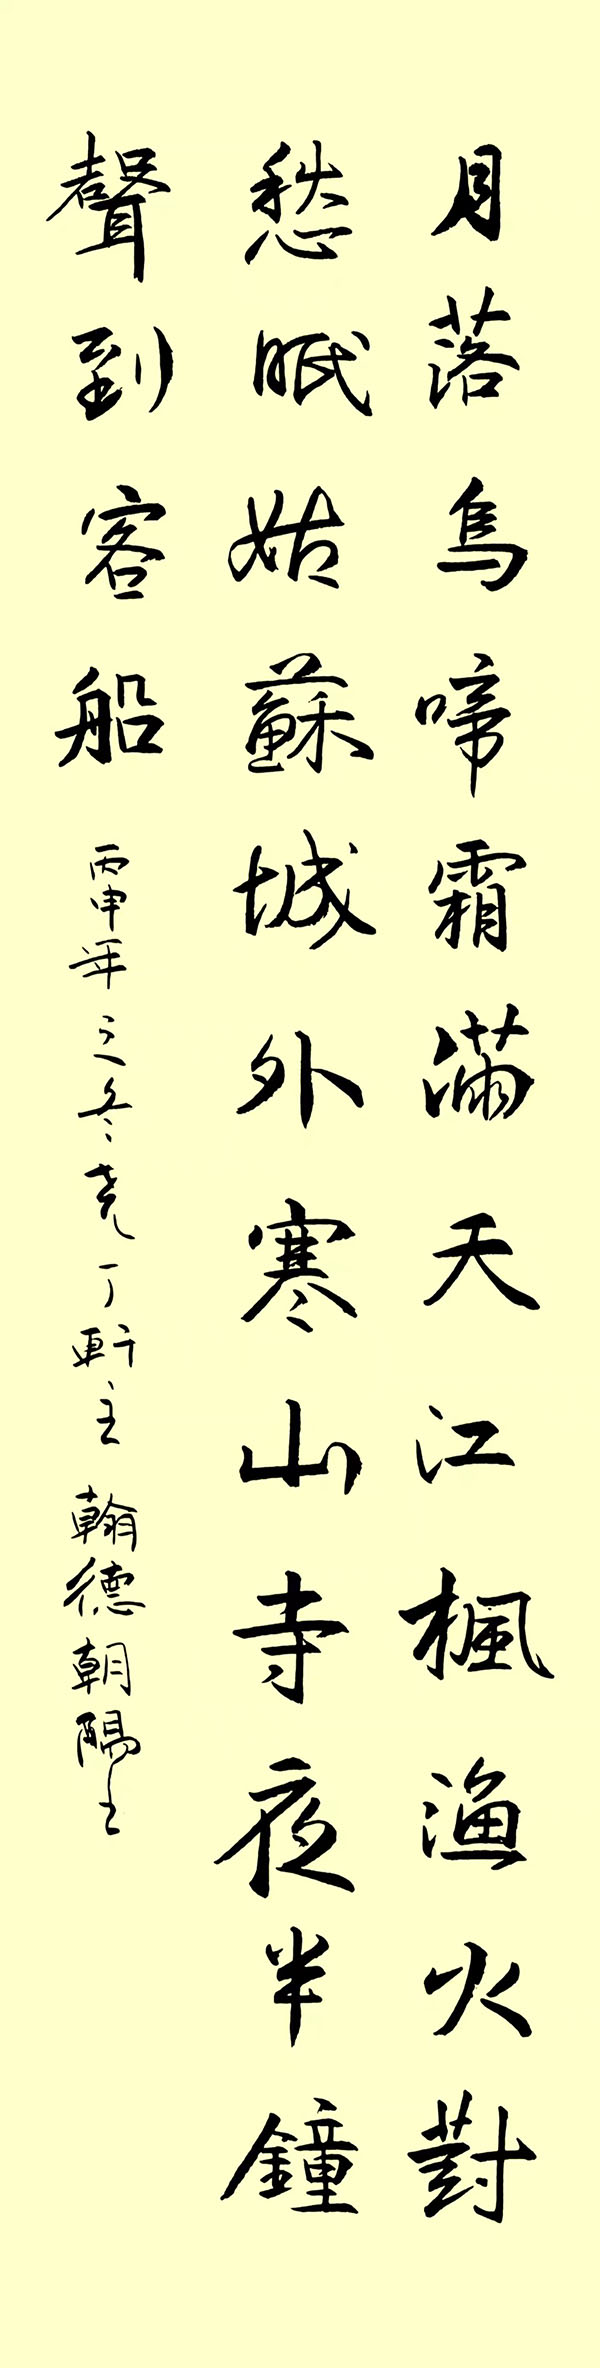 月落烏啼霜滿天江楓漁火對
愁眠姑蘇城外寒山寺夜半鐘
聲到客船
丙申年之冬堯丁軒主翰德朝陽